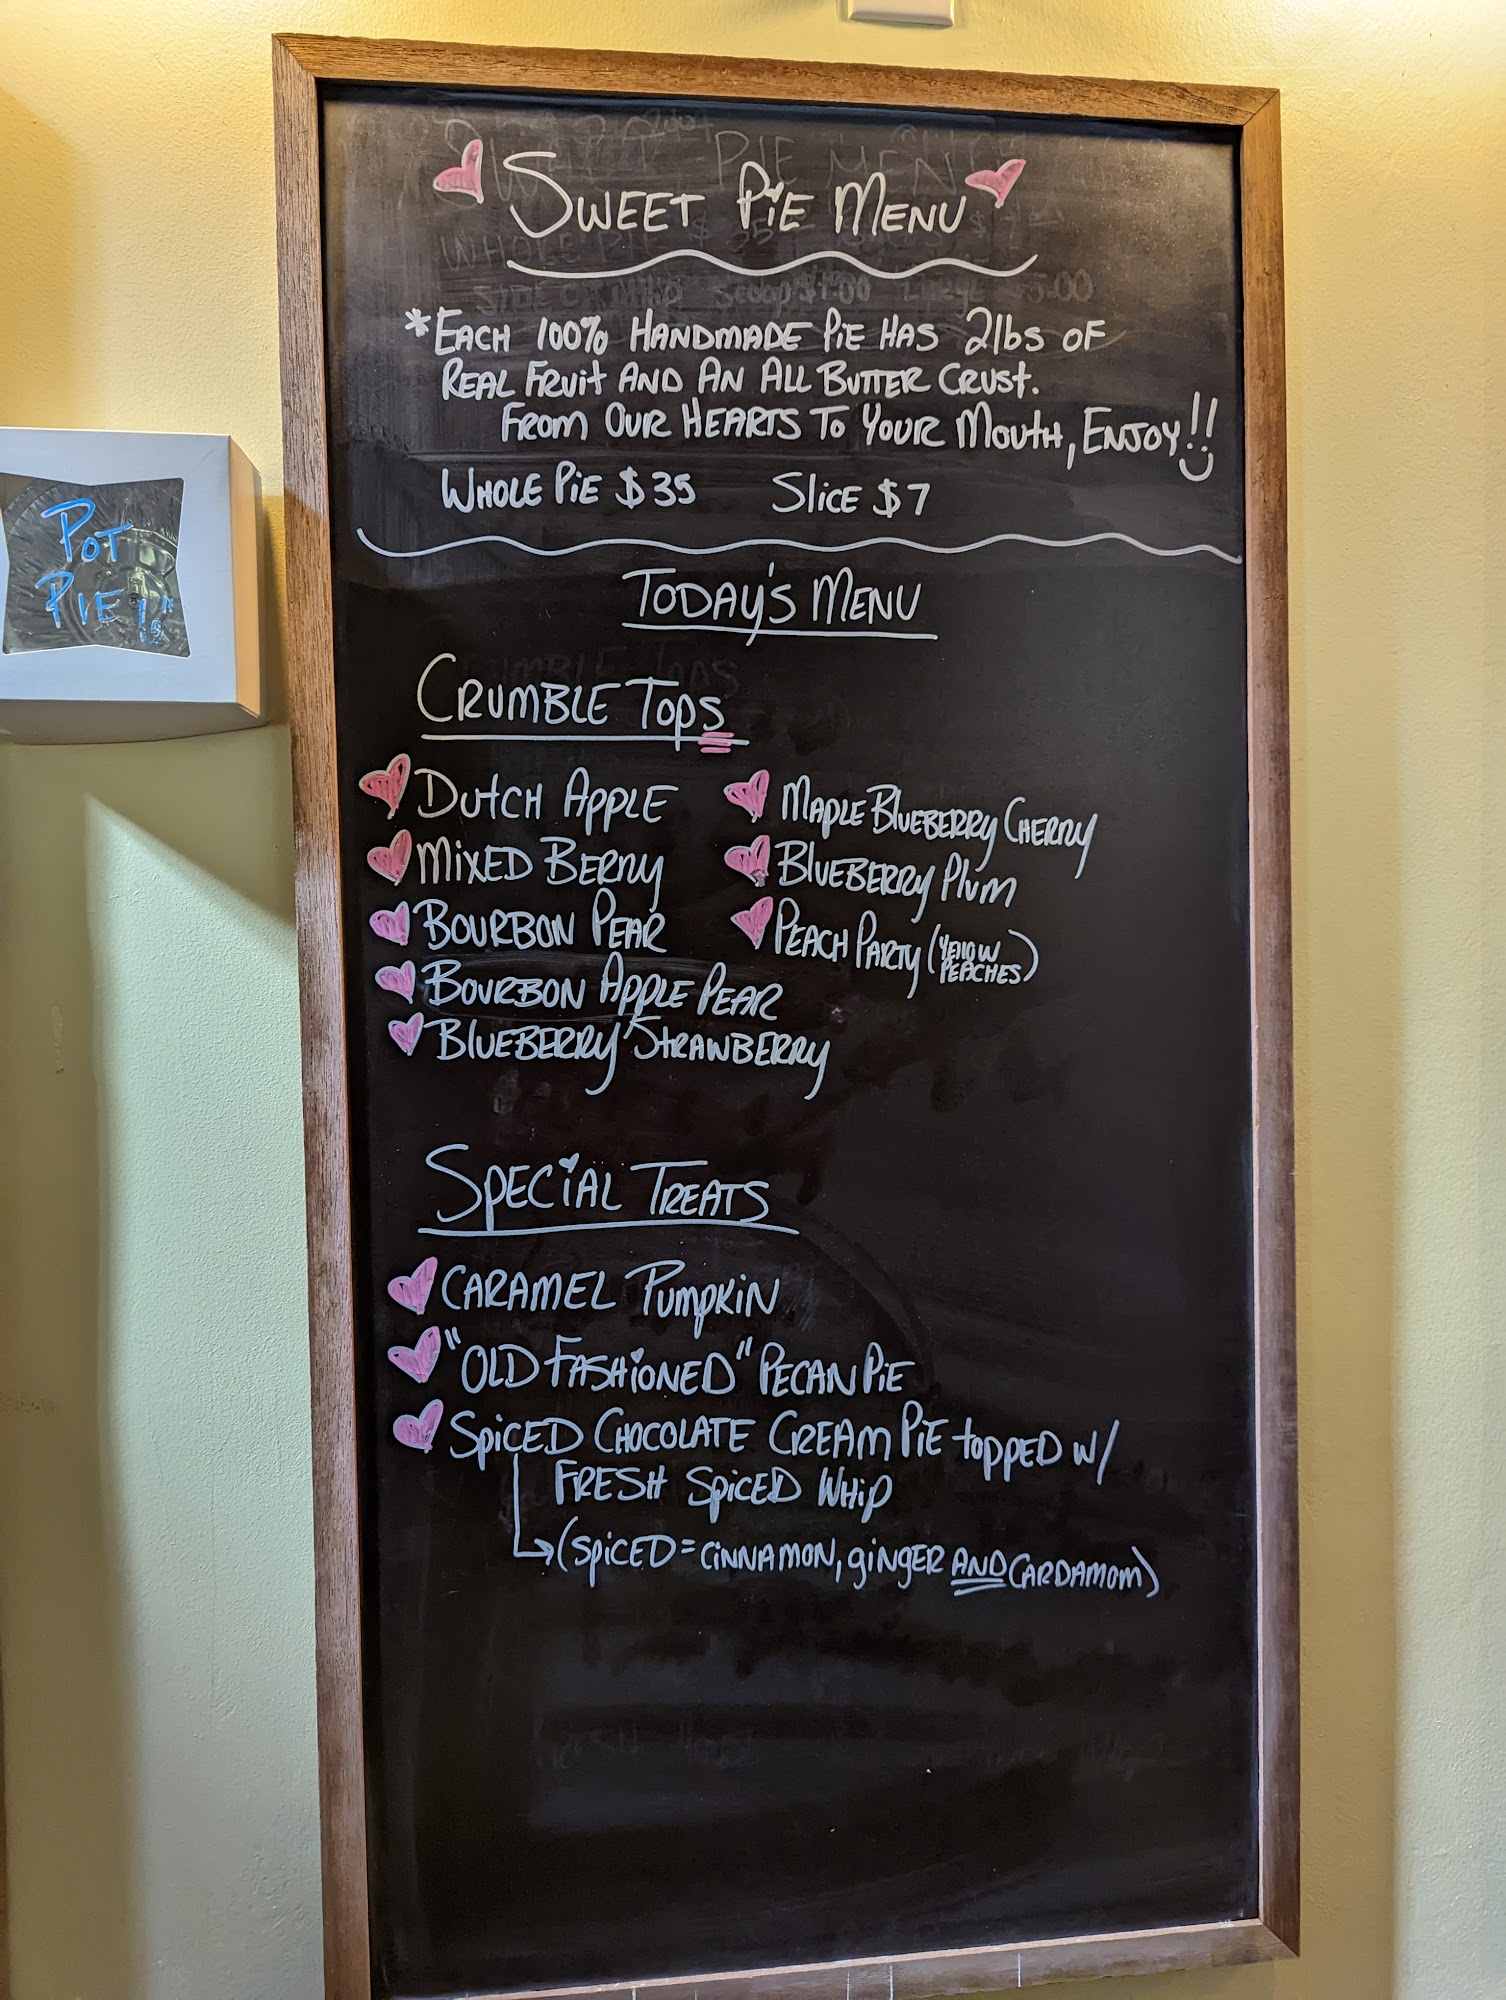 Sweet Pie Menu
*Each 100% Handmade Pie has 2lbs of
Real Fruit and an All Butter Crust.
From Our Hearts to Your Mouth, Enjoy!!
Whole Pie $35 Slice $7
Today's Menu
Crumble Tops
Dutch Apple
Mixed Berry
Bourbon Pear
Bourbon Apple Pear
Blueberry Strawberry
Maple Blueberry Cherry
Blueberry Plum
Peach Party (Yellow
Peaches)
Special Treats
Caramel Pumpkin
"Old Fashioned" Pecan Pie
Spiced Chocolate Cream Pie topped w/
Fresh Spiced Whip
(spiced = cinnamon, ginger and cardamom)
Pot
Pie